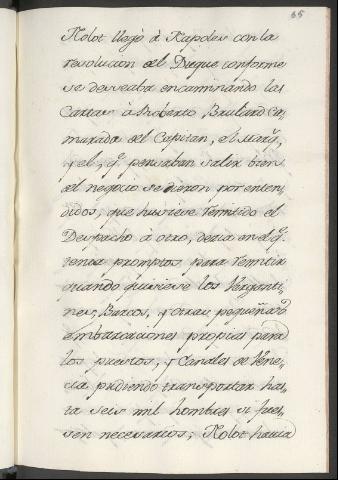 65
Nolot llegò à Napoles con la
resolucion del Duque conforme
se desseaba encaminando las
Cartas à Roberto Bruliard ca-
murada del Capitan, el Marq.s,
y el, q.e pensaban salir bien
del negocio se dieron por enten-
didos, que huviese remitido el
Despacho à otro, decia en el q.e
tenia promptos para remitir
quando quisiese los Verganti-
nes, Barcos, y otras pequeñas
embarcaciones propias para
los puertos, y Canales de Vene-
cia pudiendo transportar has-
ta seis mil hombres si fues-
sen necesarios; Nolot havia